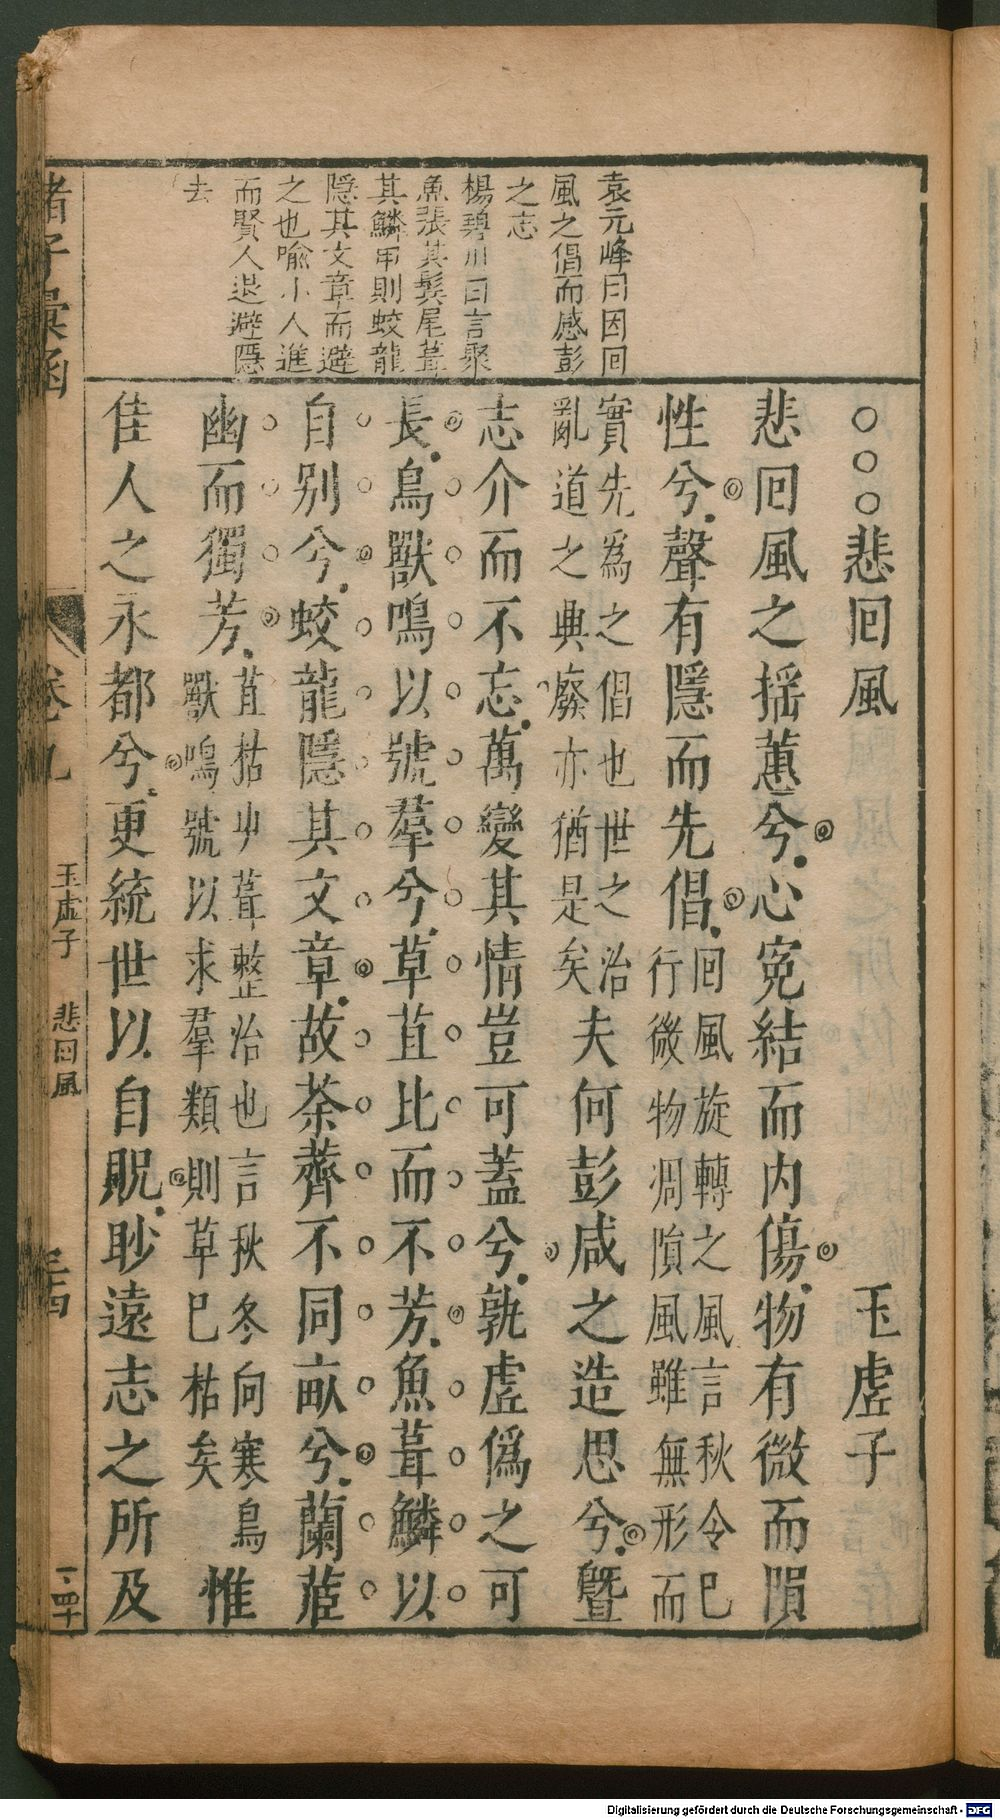 袁元峰曰因回
風之倡而感彭
之志
楊碧川曰言聚
魚張其鬂尾葺
其鱗甲則蛟龍
隱其文章而避
之也喻小人進
而賢人退避隱
去
○○○悲回風 玉虛子
悲回風之揺蕙兮心寃結而内傷物有微而隕
性兮聲有隱而先倡回風旋轉之風言秋令已
行微物凋隕風雖無形而
實先為之倡也世之治
亂道之興廢亦猶是矣夫何彭咸之造思兮曁
志介而不忘萬變其情豈可蓋兮孰虛偽之可
長鳥獸鳴以號羣兮草苴比而不芳魚葺鱗以
自别兮蛟龍隱其文章故荼薺不同畝兮蘭茝
幽而獨芳苴枯屮葺整治也言秋冬向寒鳥
獸鳴號以求羣類則草已枯矣惟
佳人之永都兮更統世以自貺眇遠志之所及
諸子彙函
卷九
玉虛子 悲回風
三十四